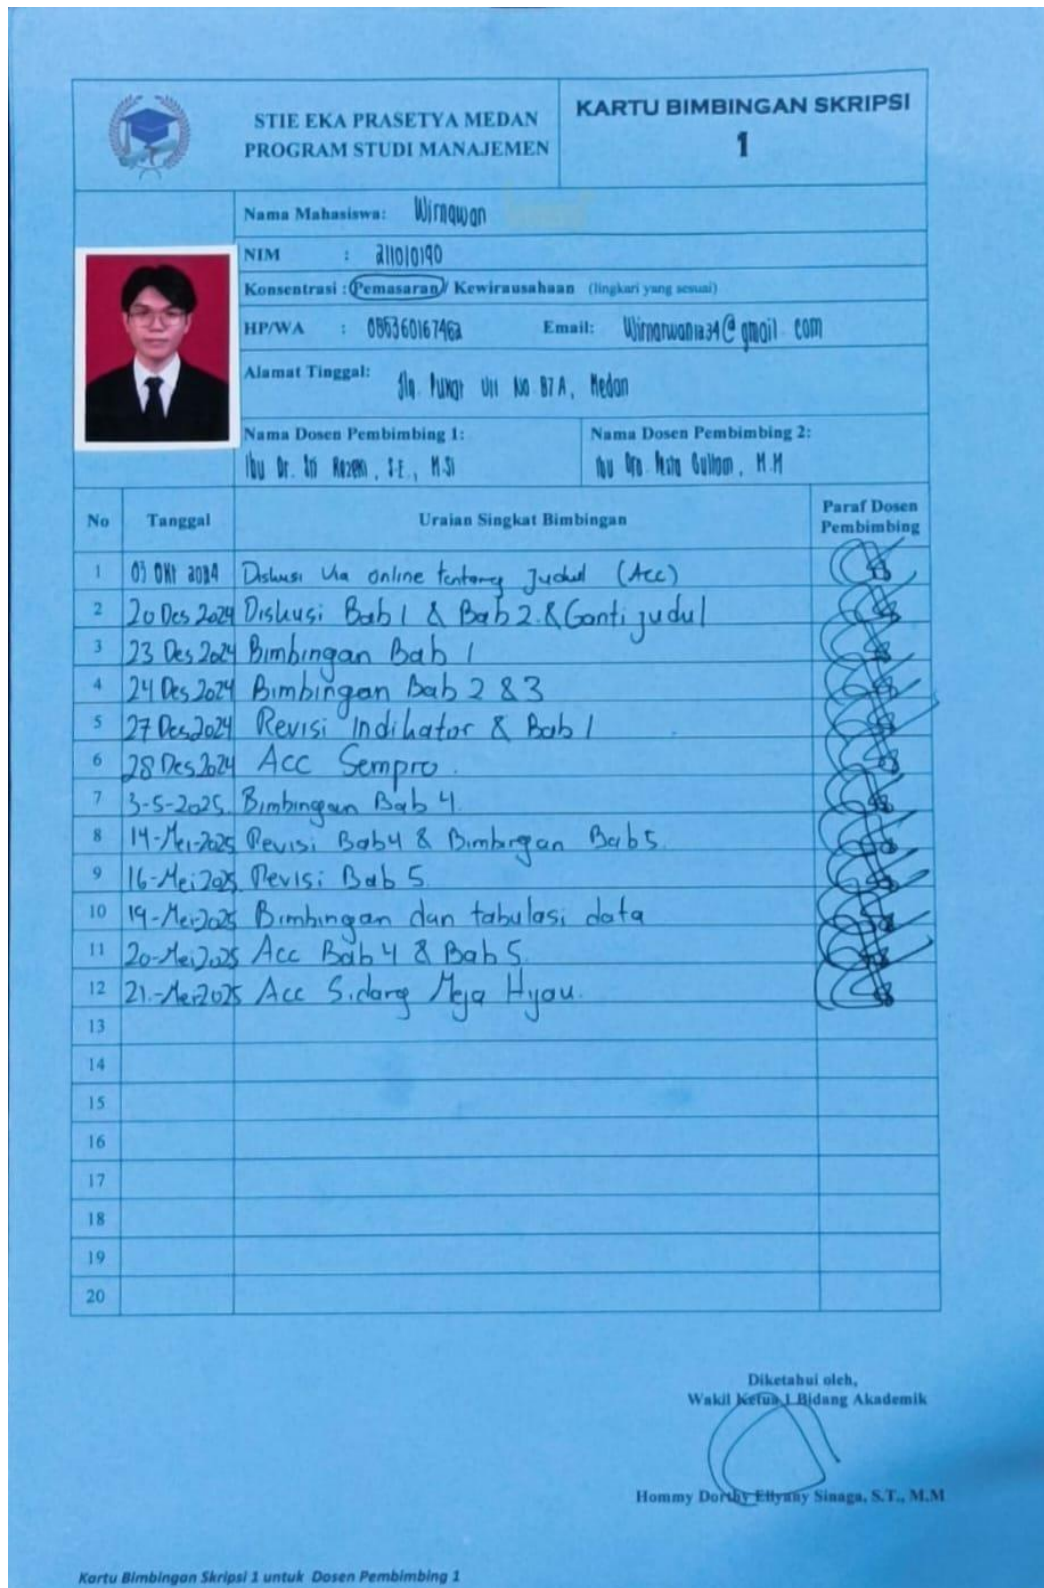 STIE EKA PRASETYA MEDAN
PROGRAM STUDI MANAJEMEN
KARTU BIMBINGAN SKRIPSI
1
Nama Mahasiswa: Wirnawan
NIM : 211010190
Konsentrasi : Pemasaran / Kewirausahaan (lingkari yang sesuai)
HP/WA : 085360167462 Email: Wirnarwan1234@gmail.com
Alamat Tinggal: Jln. VII No 87A, Medan
Nama Dosen Pembimbing 1:
Ibu Dr. Sri Rezeki, S.E., M.Si
Nama Dosen Pembimbing 2:
Ibu Dra. Pesta Gultom, M.M
No Tanggal Uraian Singkat Bimbingan Paraf Dosen Pembimbing
1 Okt 2024 Diskusi Via online tentang Judul (Acc)
2 20 Des 2024 Diskusi Bab 1 & Bab 2 & Ganti judul
3 23 Des 2024 Bimbingan Bab 1
4 24 Des 2024 Bimbingan Bab 2 & 3
5 27 Des 2024 Revisi Indikator & Bab 1
6 28 Des 2024 Acc Sempro.
7 3-5-2025. Bimbingan Bab 4.
8 14-Mei-2025 Revisi Bab 4 & Bimbingan Bab 5.
9 16-Mei 2025 Revisi Bab 5.
10 19-Mei-2025 Bimbingan dan tabulasi data
11 20-Mei 2025 Acc Bab 4 & Bab 5.
12 21-Mei 2025 Acc Sidang Meja Hijau.
13
14
15
16
17
18
19
20
Diketahui oleh,
Wakil Ketua I Bidang Akademik
Hommy Dorthy Ellyany Sinaga, S.T., M.M
Kartu Bimbingan Skripsi 1 untuk Dosen Pembimbing 1